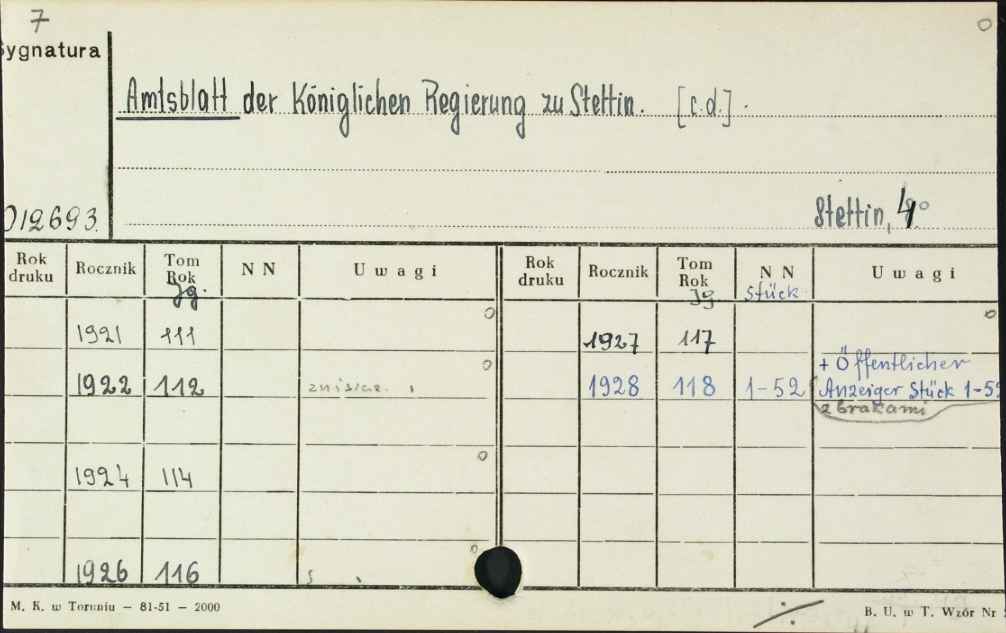 7
Sygnatura
Amtsblatt der Königlichen Regierung zu Stettin. [c.d.].
012693.
Stettin, 4°
Rok druku Rocznik Tom Rok Jg. NN Uwagi Rok druku Rocznik Tom Rok Jg. NN Stück Uwagi
1921 111 1927 117
1922 112 1928 118 1-52 + Öffentlicher
Anzeiger Stück 1-52
z brakami
1924 114
1926 116
M. K. w Toruniu — 81-51 — 2000
B. U. w T. Wzór Nr